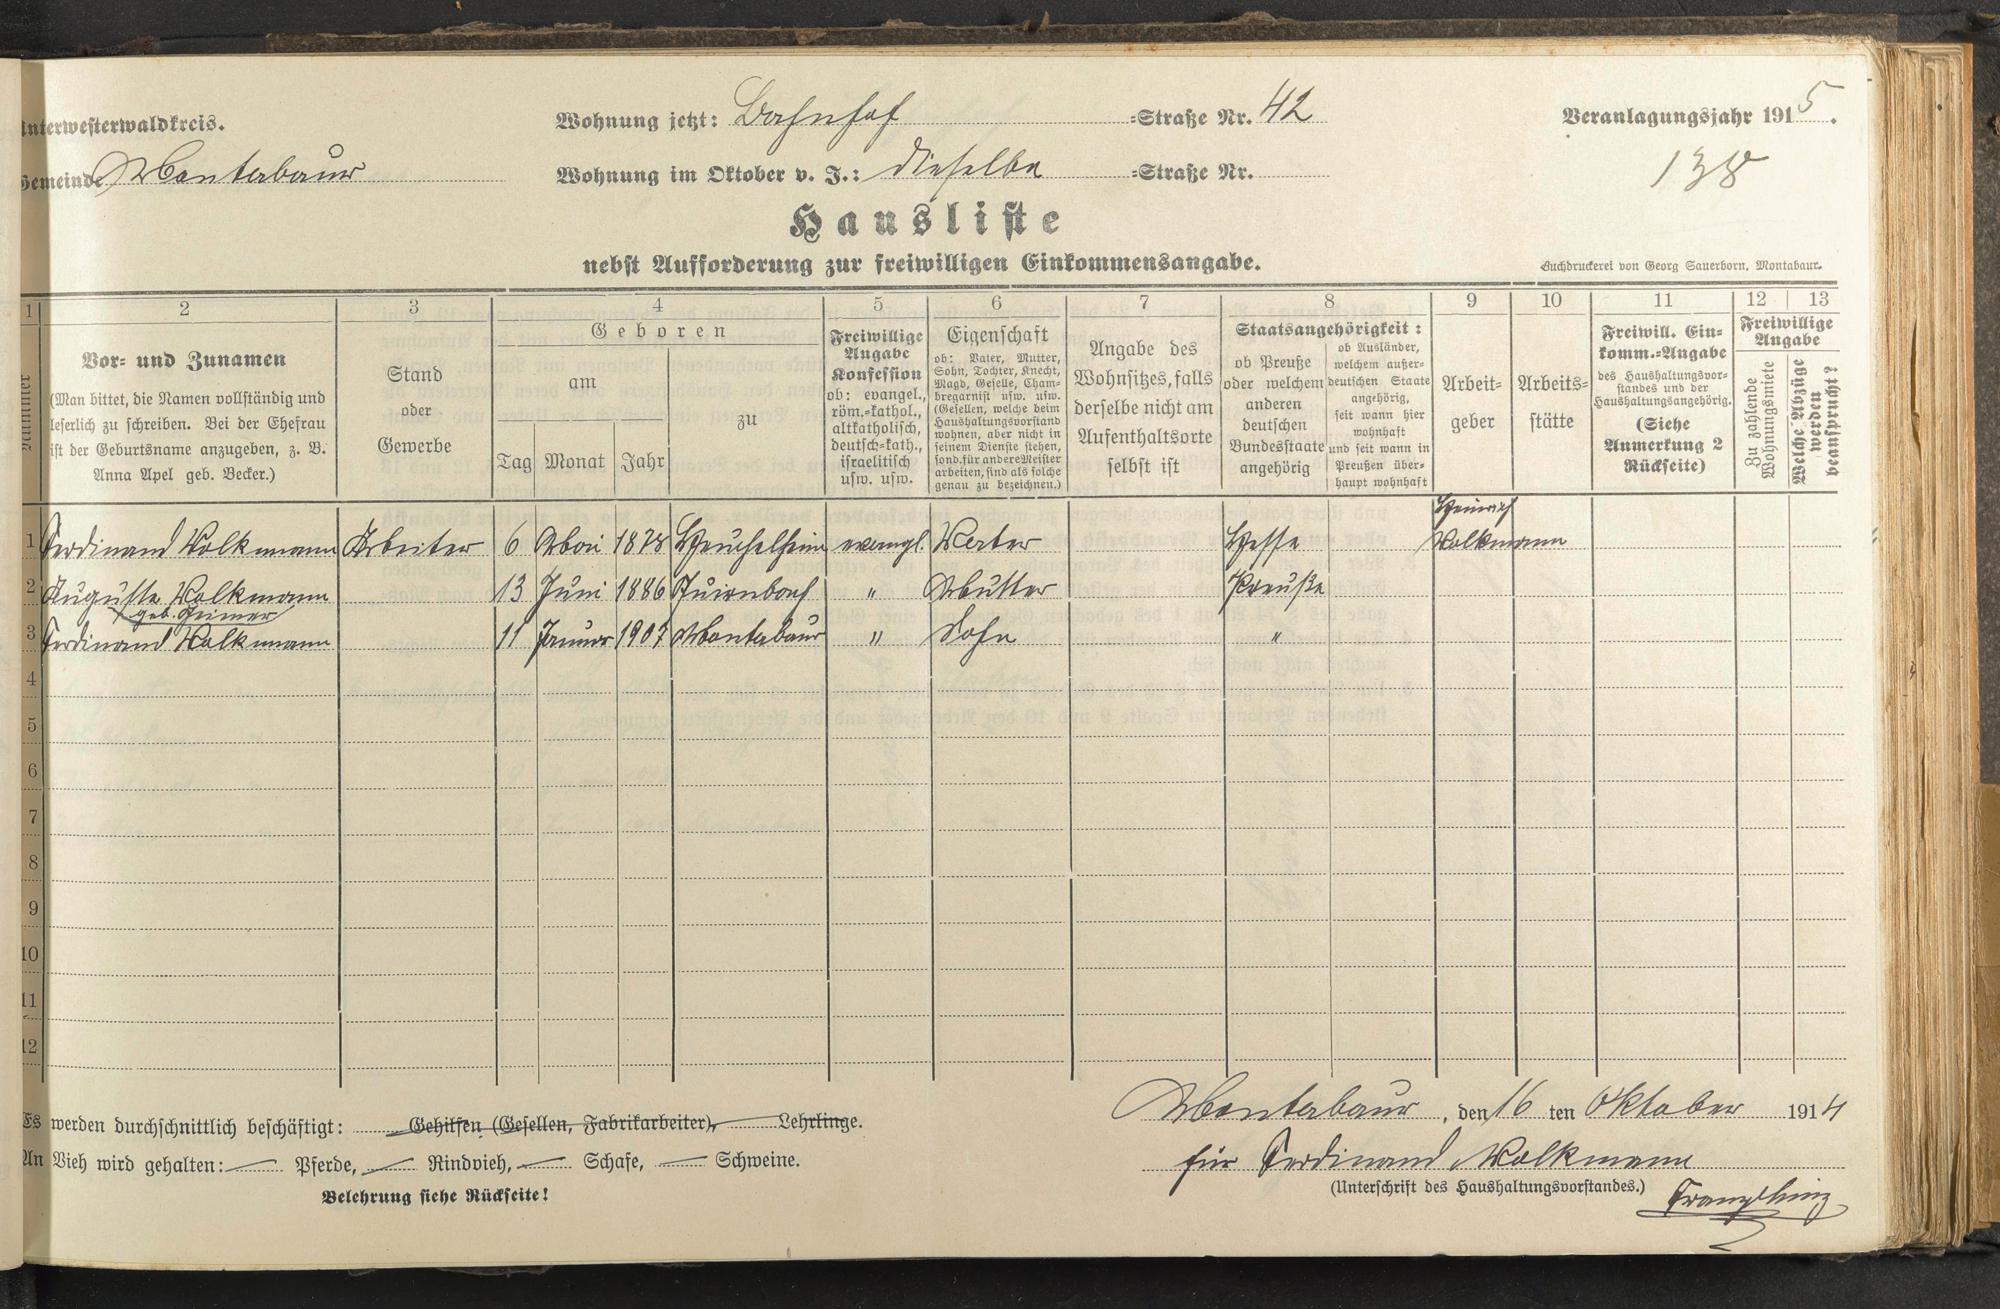 Unterwesterwaldkreis.
Wohnung jetzt: Bahnhof =Straße Nr. 42
Veranlagungsjahr 1915.
Gemeinde Montabaur
Wohnung im Oktober v. J.: dieselbe =Straße Nr.
138
Hausliste
nebst Aufforderung zur freiwilligen Einkommensangabe.
Buchdruckerei von Georg Sauerborn, Montabaur.
1 2 3 4 5 6 7 8 9 10 11 12 13
Nummer
Vor- und Zunamen
(Man bittet, die Namen vollständig und
leserlich zu schreiben. Bei der Ehefrau
ist der Geburtsname anzugeben, z. B.
Anna Apel geb. Becker.)
Stand
oder
Gewerbe
Geboren
am
zu
Tag Monat Jahr
Freiwillige
Angabe
Konfession
ob: evangel.,
röm.=kathol.,
altkatholisch,
deutsch=kath.,
israelitisch
usw. usw.
Eigenschaft
ob: Vater, Mutter,
Sohn, Tochter, Knecht,
Magd, Geselle, Cham-
bregarnist usw. usw.
(Gesellen, welche beim
Haushaltungsvorstand
wohnen, aber nicht in
seinem Dienste stehen,
sond. für andere Meister
arbeiten, sind als solche
genau zu bezeichnen.)
Angabe des
Wohnsitzes, falls
derselbe nicht am
Aufenthaltsorte
selbst ist
Staatsangehörigkeit:
ob Preuße
oder welchem
anderen
deutschen
Bundesstaate
angehörig
ob Ausländer,
welchem außer-
deutschen Staate
angehörig,
seit wann hier
wohnhaft
und seit wann in
Preußen über-
haupt wohnhaft
Arbeit-
geber
Arbeits-
stätte
Freiwill. Ein-
komm.-Angabe
des Haushaltungsvor-
standes und der
Haushaltungsangehörig.
(Siehe
Anmerkung 2
Rückseite)
Freiwillige
Angabe
Zu zahlende
Wohnungsmiete
Welche Abzüge
werden
beansprucht?
1 Ferdinand Volkmann Arbeiter 6 Mai 1878 Heuchelheim evangl. Vater Hesse Heinrich
Volkmann
2 Auguste Volkmann 13 Juni 1886 " Mutter Preuße
geb.
3 Ferdinand Volkmann 11 Januar 1907 Montabaur " Sohn "
4
5
6
7
8
9
10
11
12
Montabaur, den 16 ten Oktober 1914
Es werden durchschnittlich beschäftigt: Gehilfen (Gesellen, Fabrikarbeiter), Lehrlinge.
für Ferdinand Volkmann
An Vieh wird gehalten: — Pferde, — Rindvieh, — Schafe, — Schweine.
(Unterschrift des Haushaltungsvorstandes.)
Belehrung siehe Rückseite!